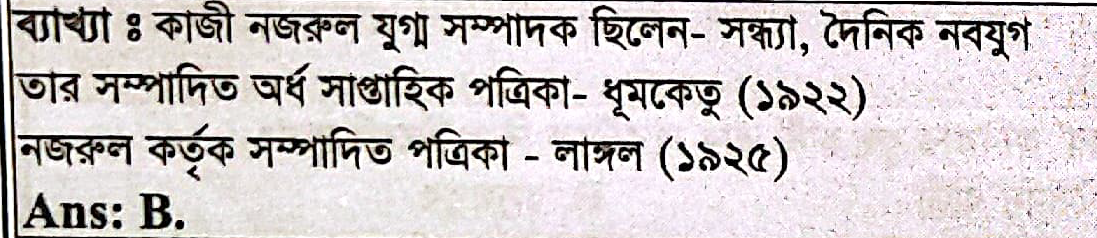 ব্যাখ্যা ঃ কাজী নজরুল যুগ্ম সম্পাদক ছিলেন- সন্ধ্যা, দৈনিক নবযুগ
তার সম্পাদিত অর্ধ সাপ্তাহিক পত্রিকা- ধূমকেতু (১৯২২)
নজরুল কর্তৃক সম্পাদিত পত্রিকা - লাঙ্গল (১৯২৫)
Ans: B.